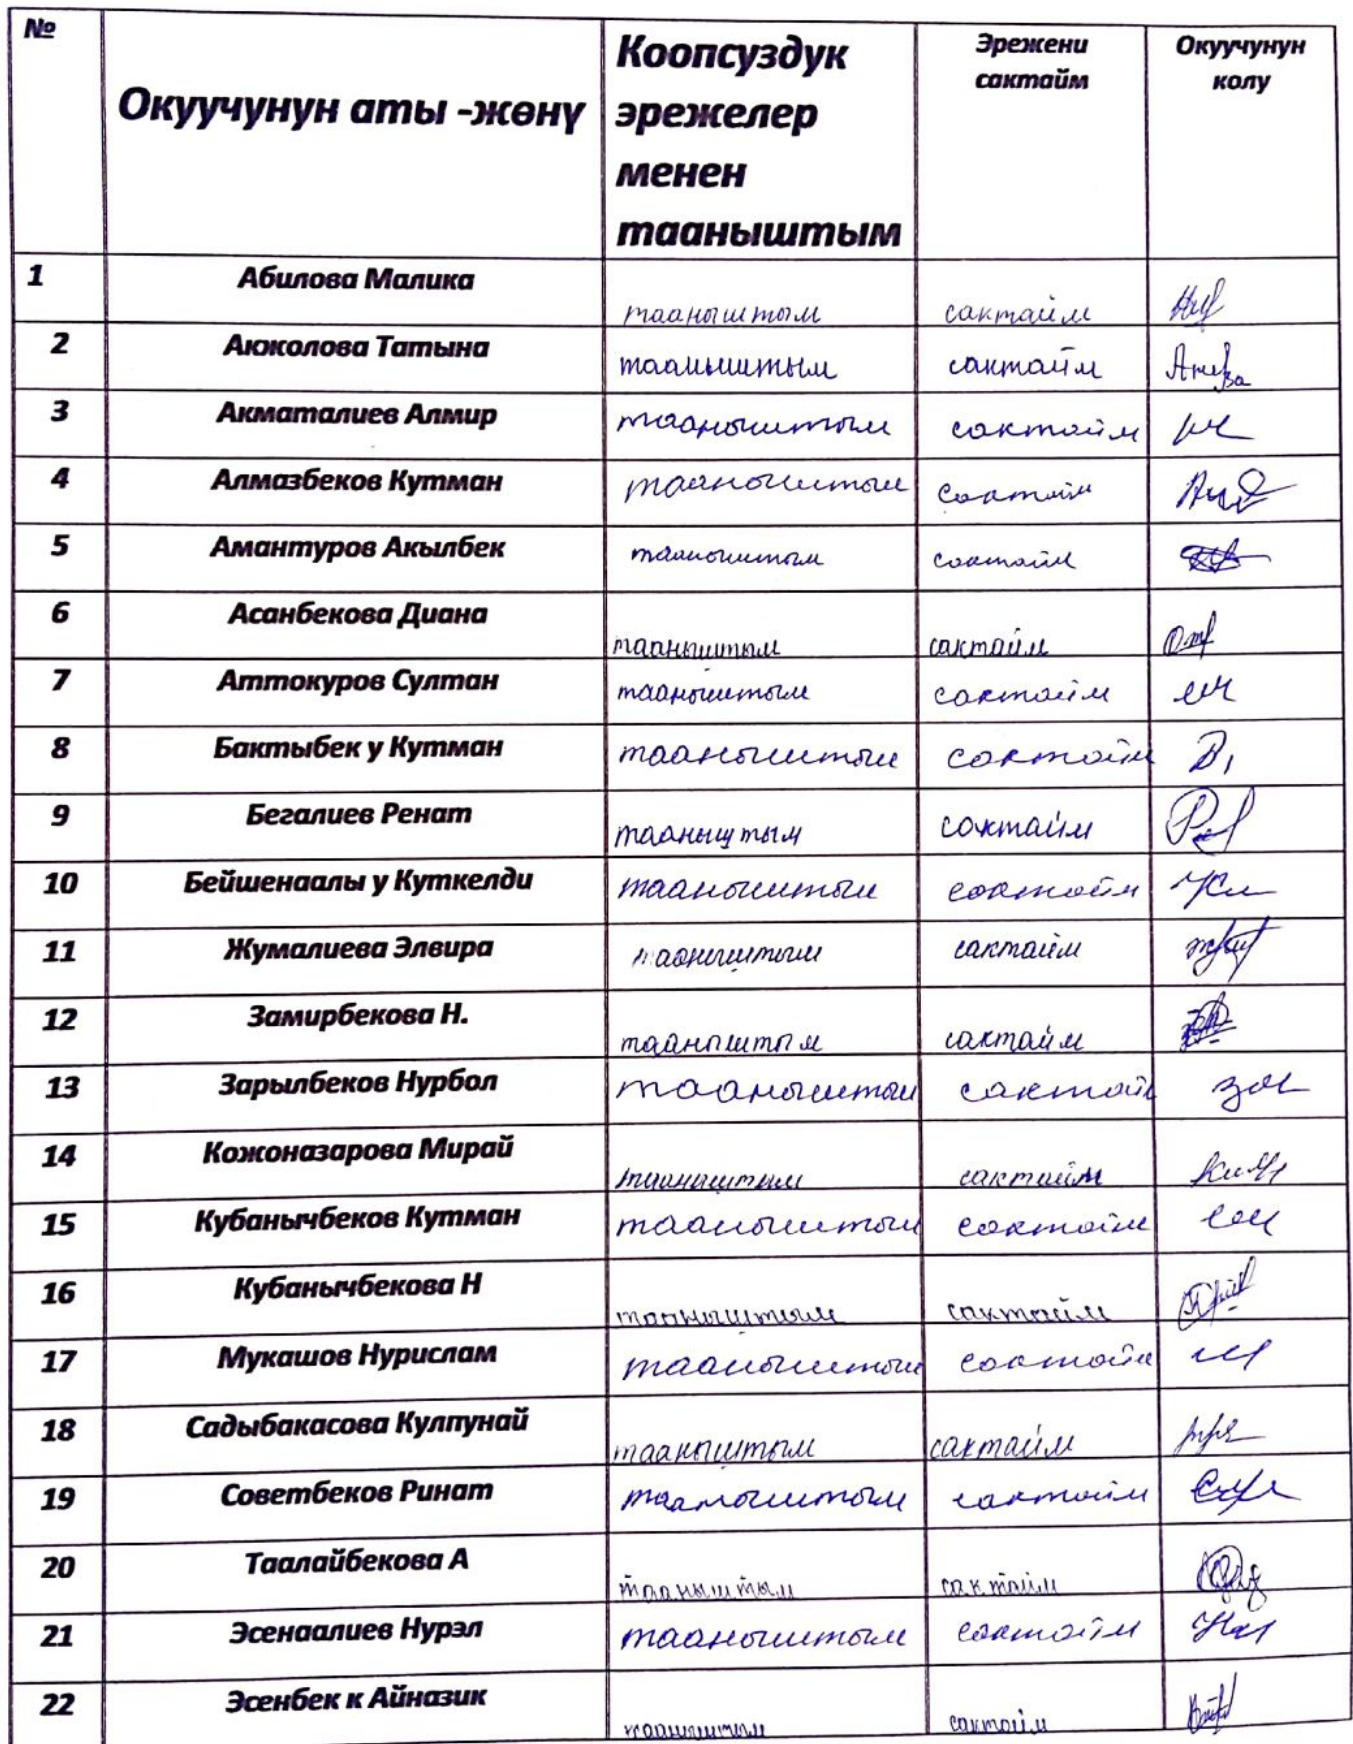 № Окуучунун аты -жөнү Коопсуздук эрежелер менен тааныштым Эрежени сактайм Окуучунун колу
1 Абилова Малика тааныштым сактайм
2 Акжолова Татына тааныштым сактайм
3 Акматалиев Алмир тааныштым сактайм
4 Алмазбеков Кутман тааныштым сактайм
5 Амантуров Акылбек тааныштым сактайм
6 Асанбекова Диана тааныштым сактайм
7 Аттокуров Султан тааныштым сактайм
8 Бактыбек у Кутман тааныштым сактайм
9 Бегалиев Ренат тааныштым сактайм
10 Бейшенаалы у Куткелди тааныштым сактайм
11 Жумалиева Элвира тааныштым сактайм
12 Замирбекова Н. тааныштым сактайм
13 Зарылбеков Нурбол тааныштым сактайм
14 Кожоназарова Мирай тааныштым сактайм
15 Кубанычбеков Кутман тааныштым сактайм
16 Кубанычбекова Н тааныштым сактайм
17 Мукашов Нурислам тааныштым сактайм
18 Садыбакасова Кулпунай тааныштым сактайм
19 Советбеков Ринат тааныштым сактайм
20 Таалайбекова А тааныштым сактайм
21 Эсенаалиев Нурэл тааныштым сактайм
22 Эсенбек к Айназик тааныштым сактайм